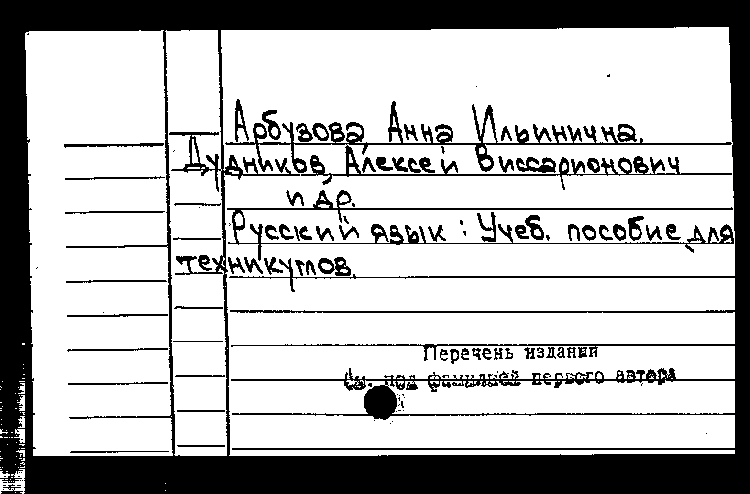 Арбузова Анна Ильинична.
Дудников, Алексей Виссарионович
и др.
Русский язык : Учеб. пособие для
техникумов.
Перечень издании
См. под фамилией первого автора